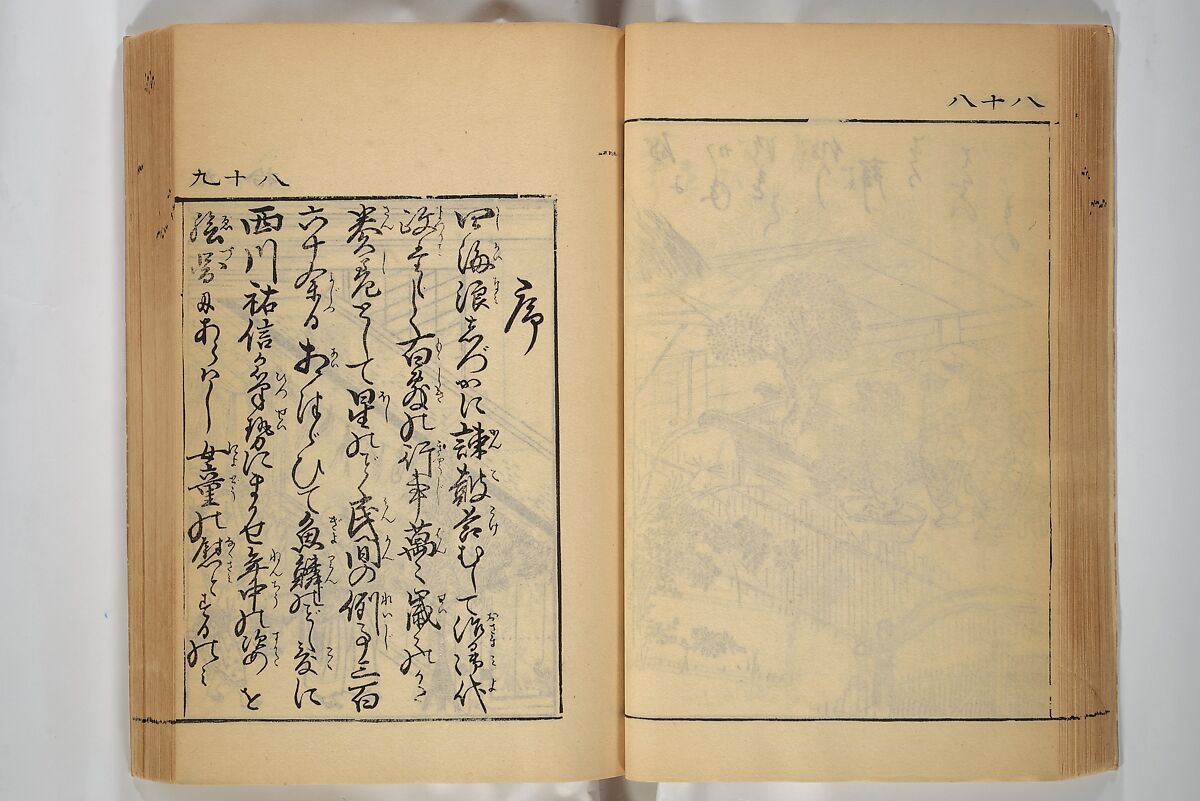 八十八
八十九
序
四海浪しづかに諫鼓苔むして治る御代
政たゞしく百敷の行事萬々歳々のかさ
巻を〆として星のごとく民間の例事三百
六十余日あひならびて魚鱗のごとし爰に
西川祐信が筆勢にまかせ年中の姿を
絵図にあらはし女童の慰とするのミ